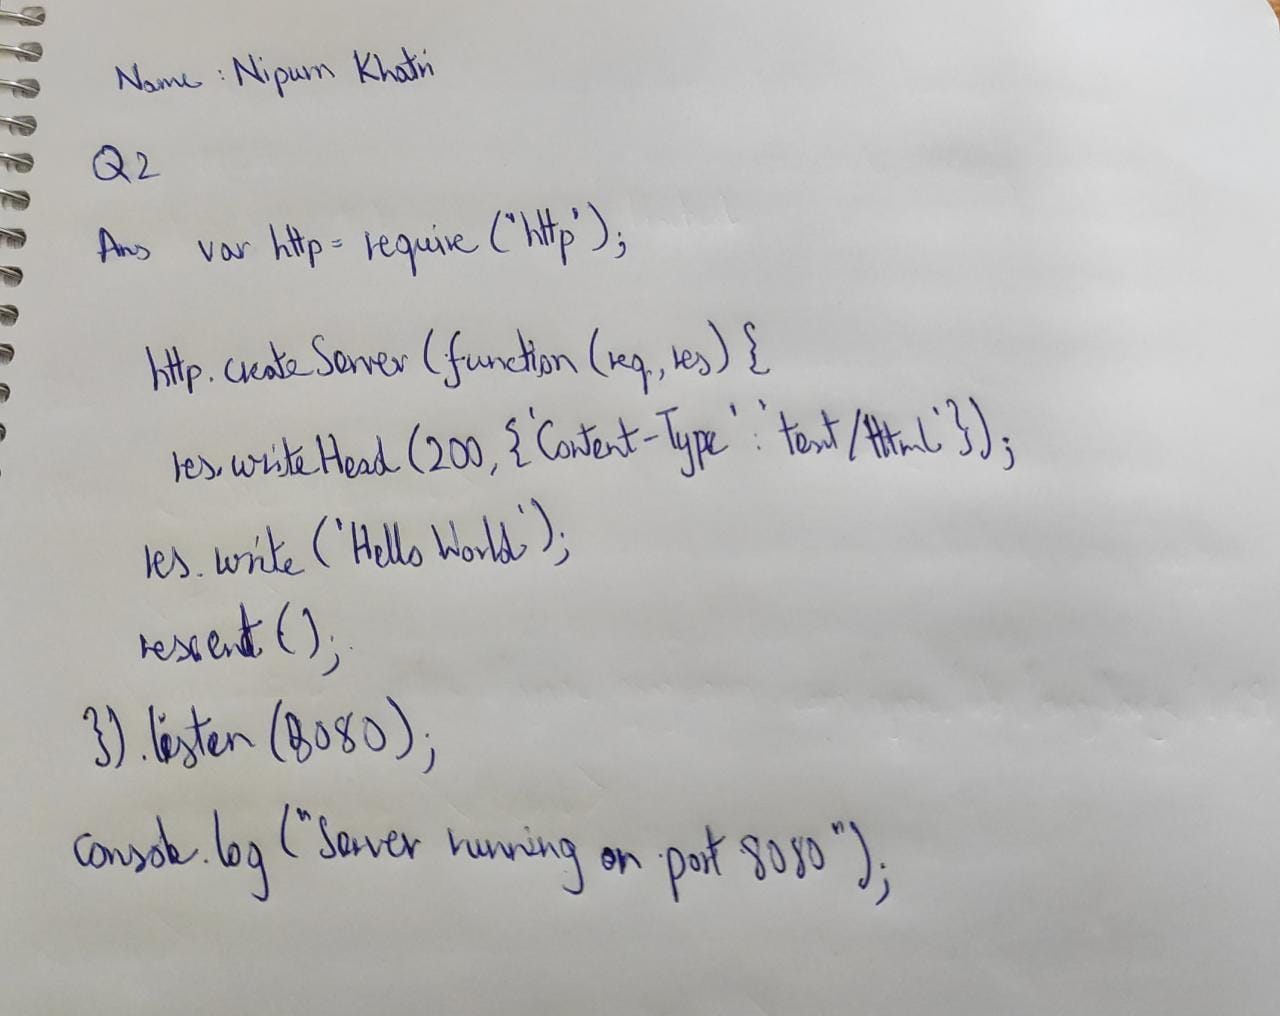 Name : Nipum Khatri
Q2
Ans var http = require ("http');
http.createServer (function (req, res) {
res.writeHead (200, {'Content-Type' : 'text/Html'});
res.write ('Hello World');
res.end ();
}).listen (8080);
console.log ("Server running on port 8080");